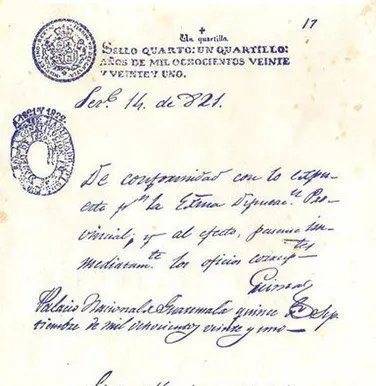 17
Un quartillo.
SELLO QUARTO: UN QUARTILLO:
AÑOS DE MIL OCHOCIENTOS VEINTE
Y VEINTE Y UNO.
14. de 821.
De conformidad con lo expu-
esto pr. la Exma Diputacn. Pro-
vincial; y al efecto, pasense in-
mediatamte. los oficios
Palacio Nacional de Guatemala quince de Sep-
tiembre de mil ochocientos veinte y uno